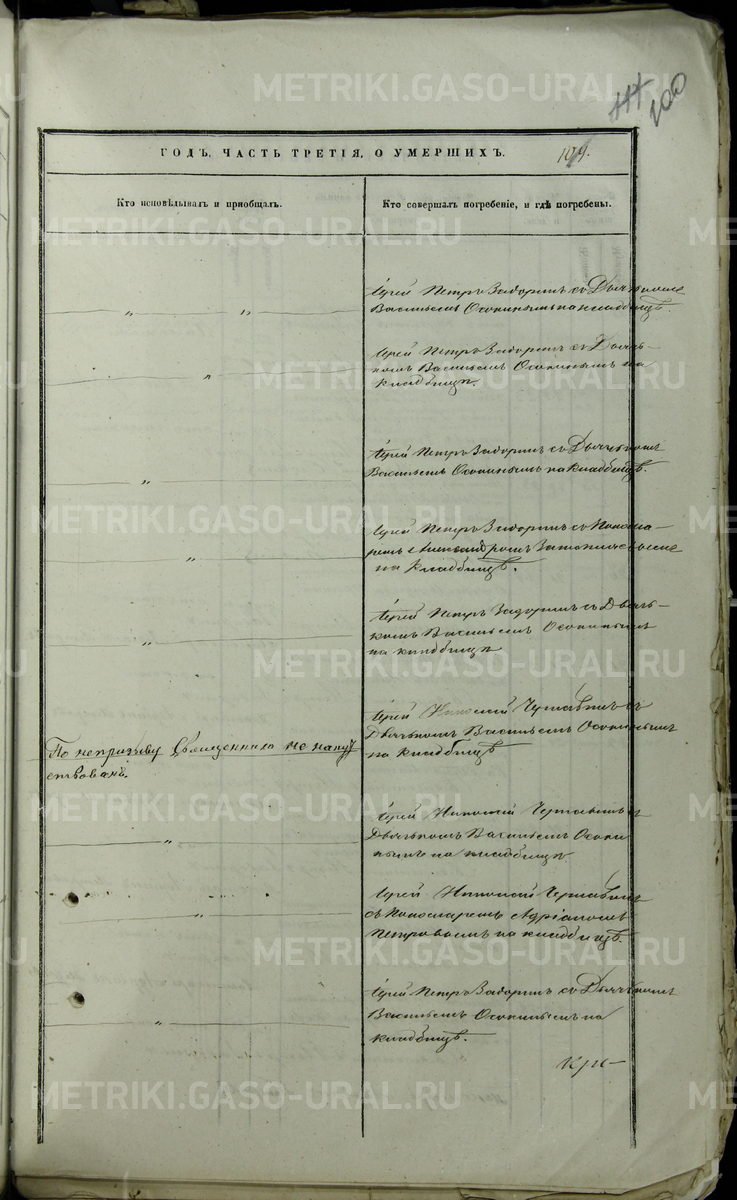 200
ГОДЪ, ЧАСТЬ ТРЕТІЯ, О УМЕРШИХЪ.
Кто исповѣдывалъ и пріобщалъ.
Кто совершалъ погребеніе, и гдѣ погребены.
Іерей Петръ Задоринъ съ Дьячкомъ
Васильемъ Осокинымъ на кладбищѣ
Іерей Петръ Задоринъ съ Дьяч-
комъ Васильемъ Осокинымъ на
кладбищѣ.
Іерей Петръ Задоринъ съ Дьячкомъ
Васильемъ Осокинымъ на кладбищѣ.
Іерей Петръ Задоринъ съ Понома-
ремъ Александромъ
на кладбищѣ.
Іерей Петръ Задоринъ съ Дьяч-
комъ Васильемъ Осокинымъ
на кладбищѣ
По непризыву Священника не напут
ствованъ.
Іерей Николай съ
Дьячкомъ Васильемъ Осокинымъ
на кладбищѣ
Іерей Николай съ
Дьячкомъ Васильемъ Осоки
нымъ на кладбищѣ
Іерей Николай
съ Пономаремъ Адріаномъ
Петровымъ на кладбищѣ.
Іерей Петръ Задоринъ съ Дьячкомъ
Васильемъ Осокинымъ на
кладбищѣ.
METRIKI.GASO-URAL.RU